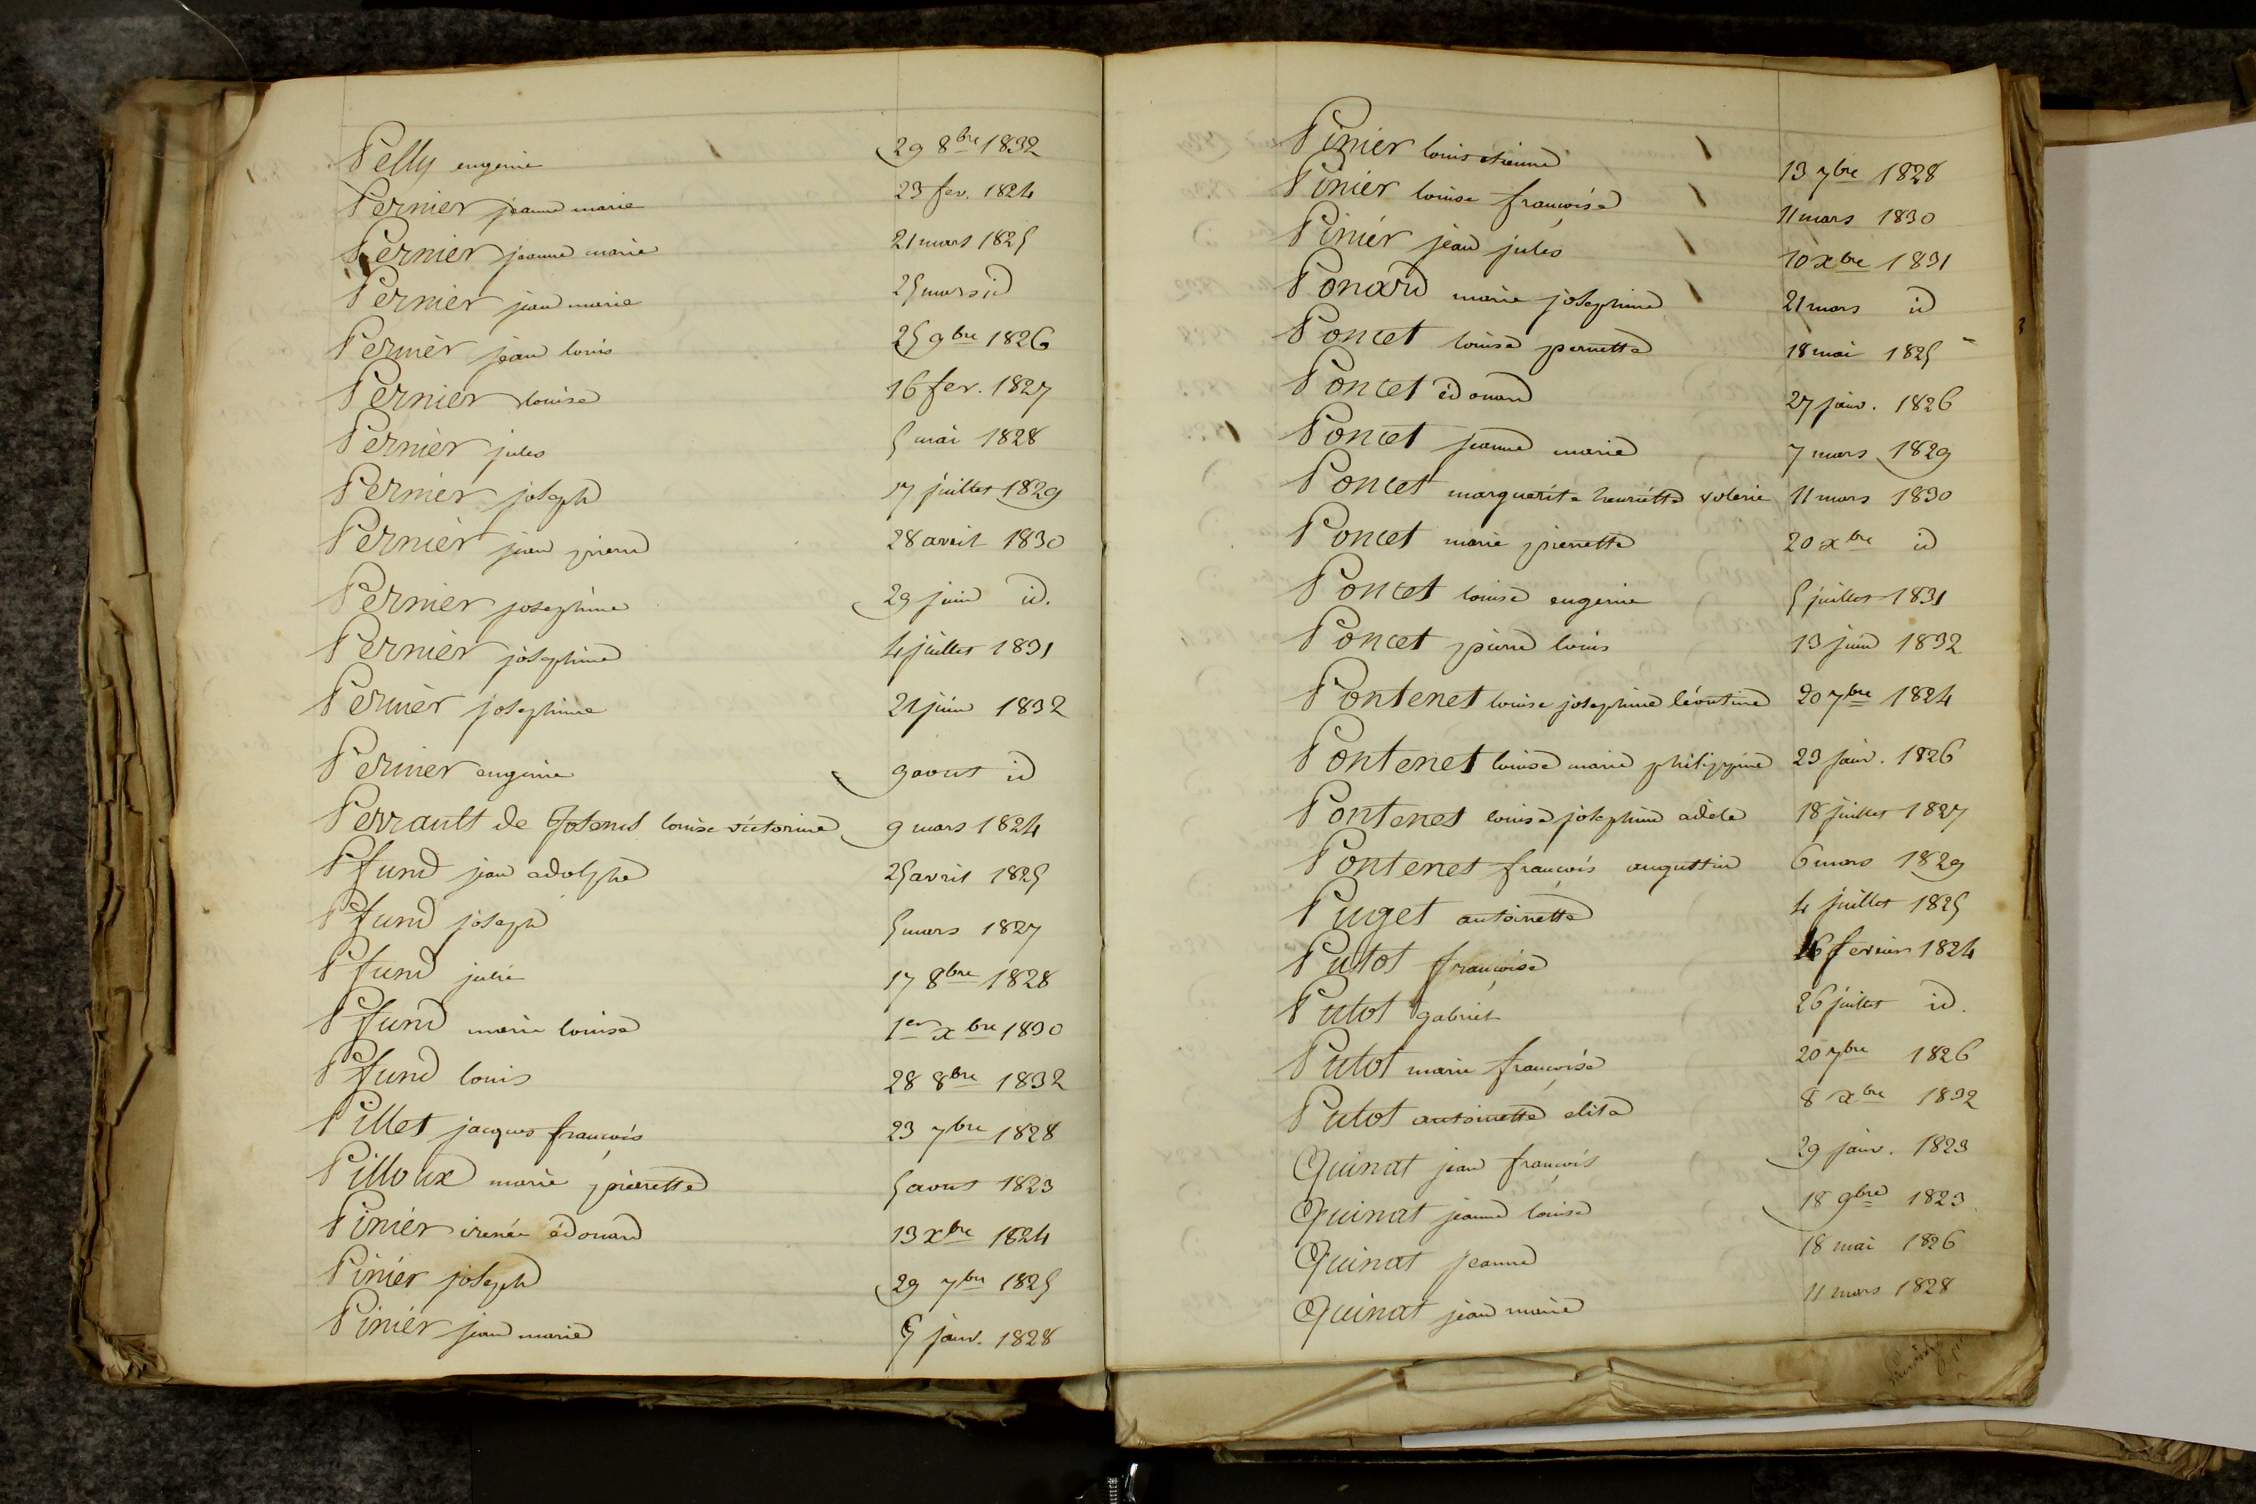 Pelly eugenie 29 8bre 1832
Pernier jeanne marie 23 fev. 1824
Pernier jeanne marie 21 mars 1825
Pernier jean marie 25 mars id
Pernier jean louis 25 9bre 1826
Pernier louise 16 fev. 1827
Pernier jules 5 mai 1828
Pernier joseph 17 juillet 1829
Pernier jean pierre 28 avril 1830
Pernier josephine 29 juin id.
Pernier josephine 4 juillet 1831
Pernier josephine 21 juin 1832
Pernier eugenie 9 aout id
Perrault de Jotemps louise victorine 9 mars 1824
Pfund jean adolphe 25 avril 1825
Pfund joseph 5 mars 1827
Pfund julie 17 8bre 1828
Pfund marie louise 1er xbre 1830
Pfund louis 28 8bre 1832
Pillet jacques françois 23 7bre 1828
Pilloux marie pierrette 5 aout 1823
Pinier irenée édouard 13 xbre 1824
Pinier joseph 29 7bre 1825
Pinier jean marie janv. 1828
Pinier louis etienne 13 7bre 1828
Pinier louise françoise 11 mars 1830
Pinier jean jules 10 xbre 1831
Ponard marie josephine 21 mars id
Poncet louise pernette 18 mai 1825
Poncet édouard 27 janv. 1826
Poncet jeanne marie 7 mars 1829
Poncet marguerite henriette valerie 11 mars 1830
Poncet marie pierrette 20 xbre id
Poncet louise eugenie 5 juillet 1831
Poncet pierre louis 13 juin 1832
Pontenet louise josephine léontine 20 7bre 1824
Pontenet louise marie philippine 23 janv. 1826
Pontenet louise josephine adèle 18 juillet 1827
Pontenet françois augustin 6 mars 1829
Puget antoinette 4 juillet 1825
Putot françoise 16 fevrier 1824
Putot gabriel 26 juillet id.
Putot marie françoise 20 7bre 1826
Putot antoinette elisa 8 xbre 1832
Quinat jean françois 29 janv. 1823
Quinat jeanne louise 18 9bre 1823
Quinat jeanne 18 mai 1826
Quinat jean marie 11 mars 1828